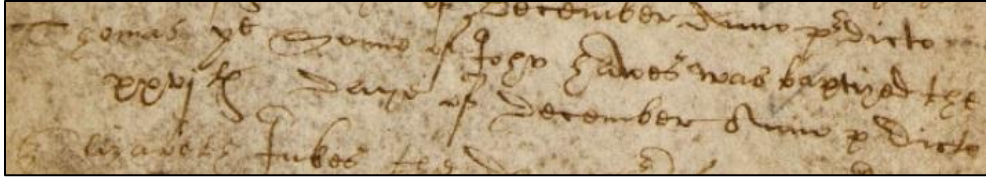 of December Anno p dicto
Thomas ye Sonne of John Hawes was baptized the
xxvjth Daye of December Anno p dicto
Elizabeth Jukes the